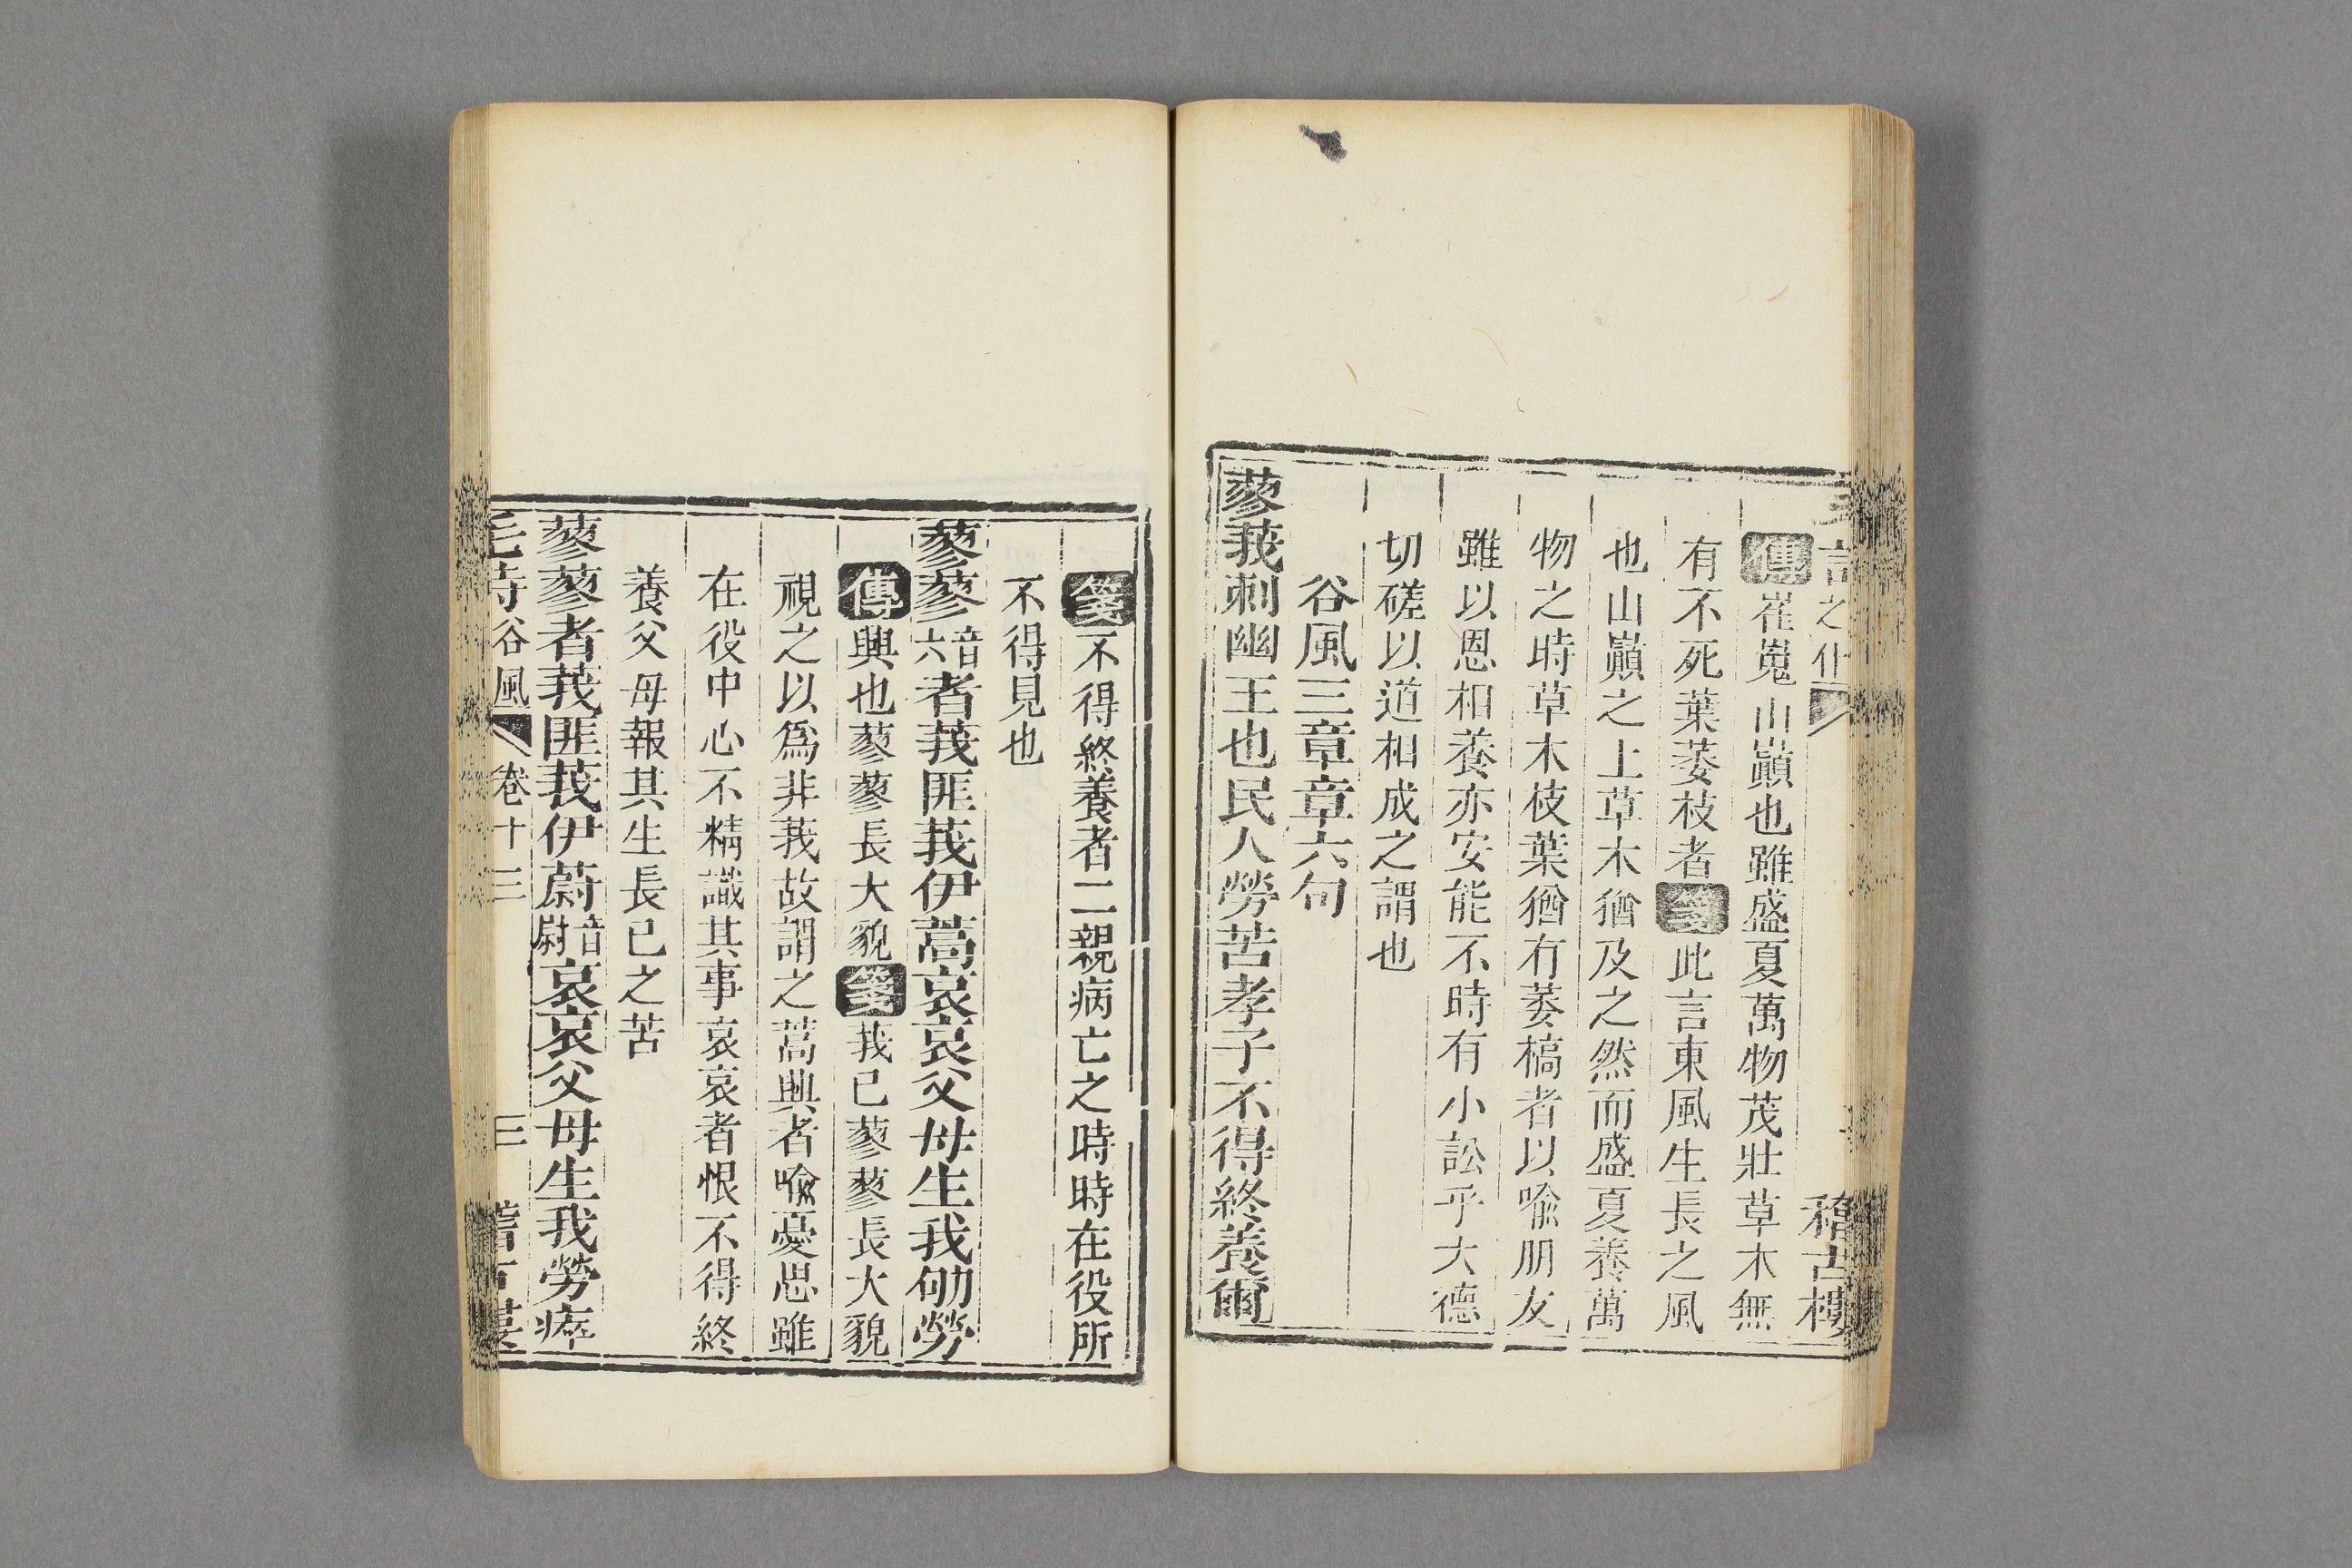 稽古樓
傳崔嵬山巔也雖盛夏萬物茂壯草木無
有不死葉萎枝者箋此言東風生長之風
也山巔之上草木猶及之然而盛夏養萬
物之時草木枝葉猶有萎槁者以喻朋友
雖以恩相養亦安能不時有小訟乎大德
切磋以道相成之謂也
谷風三章章六句
蓼莪刺幽王也民人勞苦孝子不得終養爾
箋不得終養者二親病亡之時時在役所
不得見也
蓼蓼音六者莪匪莪伊蒿哀哀父母生我劬勞
傳興也蓼蓼長大貌箋莪已蓼蓼長大貌
視之以爲非莪故謂之蒿興者喻憂思雖
在役中心不精識其事哀哀者恨不得終
養父母報其生長已之苦
蓼蓼者莪匪莪伊蔚音尉哀哀父母生我勞瘁
毛詩谷風 卷十三 三 稽古樓